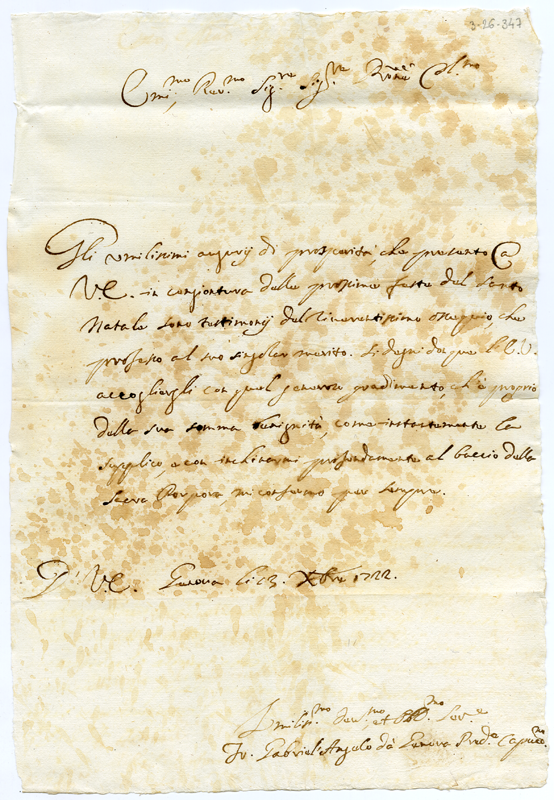 3-26-347
Em.mo, Rev.mo Sig.re Sig.re Pron.e Col.mo
Gli umilissimi augurij di prosperità, che presento a
V.E. in congiontura delle prossime feste del Santo
Natale sono testimonij del riverentissimo ossequio, che
professo al suo singolar merito. Si degni donque l'E.V.
accogliergli con quel generoso gradimento, ch'è proprio
della sua somma benignità, come instantemente la
supplico, e con inchinarmi profondamente al baccio della
Sacra Porpora, mi confermo per sempre.
D' V.E. Genova li 13. Xbre 1722.
Umilis.mo Dev.mo et Obb.mo Ser.e
Fr. Gabriel'Angelo da Genova Pred.e Capuc.no